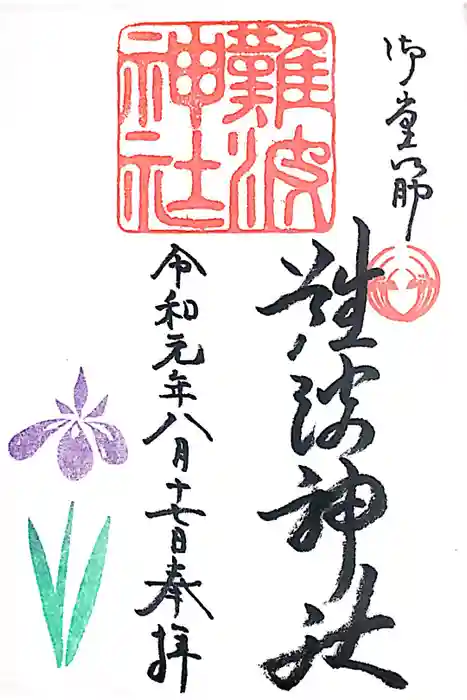 御堂筋
難波神社
難波神社
令和元年八月十七日奉拝